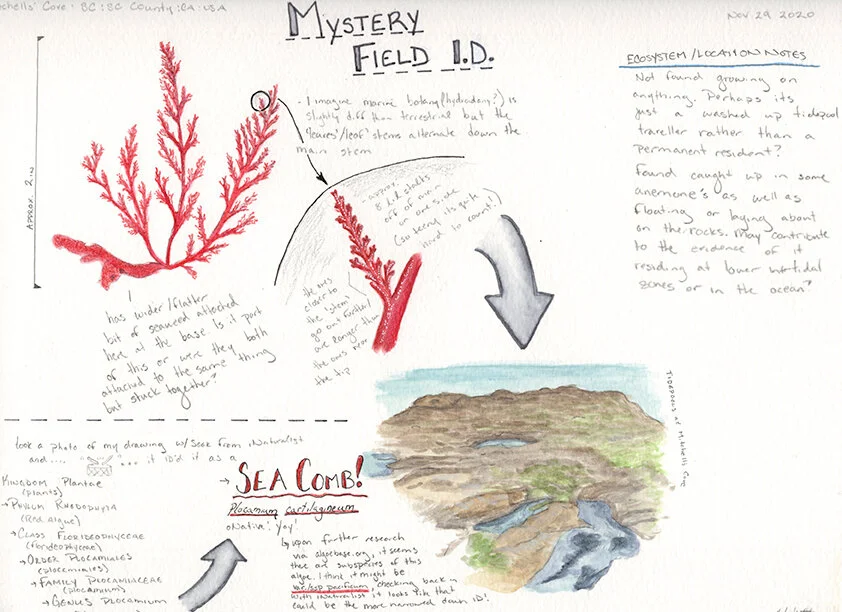 chells' Cove: SC: SC County: CA: USA
Nov 29 2020
MYSTERY
FIELD I.D.
APPROX. 2 IN
- I imagine marine botany (hydrodomy?) is
slightly diff than terrestrial but the
"leaves"/"leaf" stems alternate down the
main stem
- approx.
off of main
on one side
(so teeny its quite
hard to count!)
the ones
closer to
the "stem"
go out further/
are longer than
the ones near
the tip
has wider/flatter
bit of seaweed attached
here at the base Is it part
of this or were they both
attached to the same thing
but stuck together?
ECOSYSTEM/LOCATION NOTES
Not found growing on
anything. Perhaps its
just a washed up tidepool
traveller rather than a
permanent resident?
Found caught up in some
anemone's as well as
floating or laying about
on the rocks. May contribute
to the evidence of it
residing at lower intertidal
zones or in the ocean?
TIDEPOOLS AT Mitchells Cove
took a photo of my drawing w/Seek from iNaturalist
and .... "..." it ID'd it as a
→ SEA COMB!
Plocamium cartilagineum
○ Native! Yay!
↳ upon further research
via algaebase.org, it seems
there are subspecies of this
algae. I think it might be
var/ssp pacificum, checking back
with iNaturalist it looks like that
could be the more narrowed down ID!
KINGDOM PLANTAE
(plants)
→ PHYLUM RHODOPHYTA
(Red Algae)
→ CLASS FLORIDEOPHYCEAE
(florideophyceae)
→ ORDER PLOCAMIALES
(plocamiales)
→ FAMILY PLOCAMIACEAE
(plocamium)
→ GENUS PLOCAMIUM